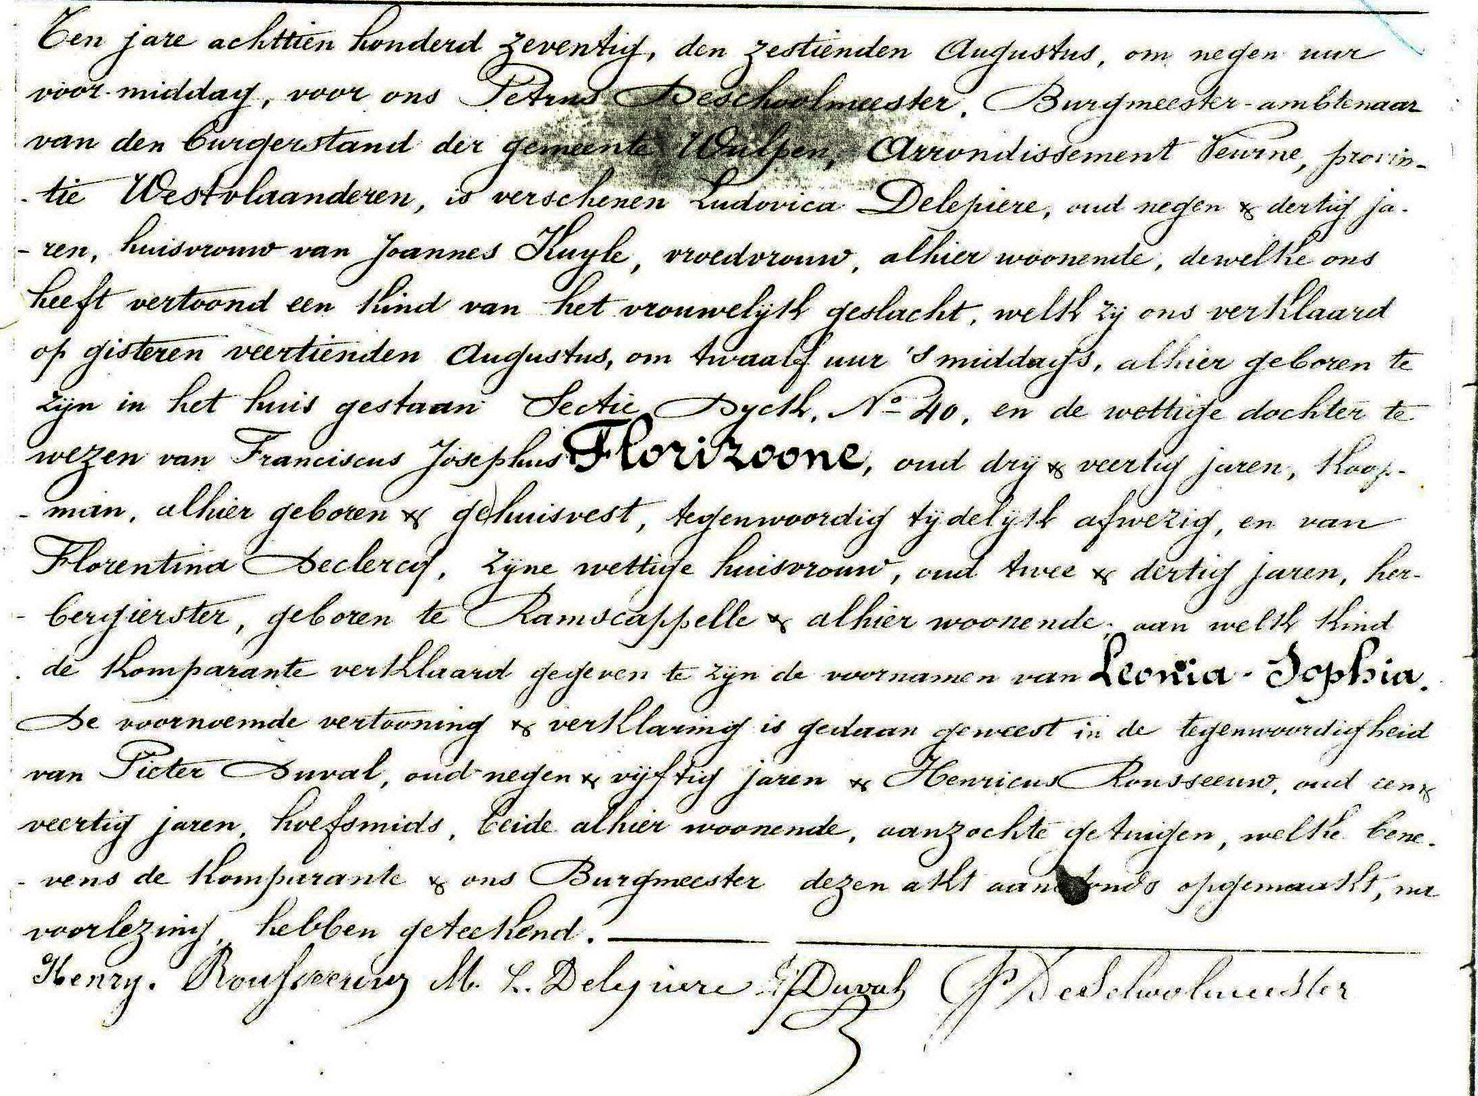 Ten jare achttien honderd zeventig, den zestienden Augustus, om negen uur
voor-middag, voor ons Petrus Deschoolmeester, Burgmeester-ambtenaar
van den burgerstand der gemeente Wulpen, Arrondissement Veurne, provin-
-tie Westvlaanderen, is verschenen Ludovica Delepiere, oud negen & dertig ja-
-ren, huisvrouw van Joannes Kuyle, vroedvrouw, alhier woonende, dewelke ons
heeft vertoond een kind van het vrouwelijk geslacht, welk zy ons verklaard
op gisteren veertienden Augustus, om twaalf uur 's middags, alhier geboren te
zyn in het huis gestaan Sectie Dyck, No 40, en de wettige dochter te
wezen van Franciscus Josephus Florizoone, oud dry & veertig jaren, koop-
-man, alhier geboren & gehuisvest, tegenwoordig tydelyk afwezig, en van
Florentina Declercq, zyne wettige huisvrouw, oud twee & dertig jaren, her-
-bergierster, geboren te Ramscappelle & alhier woonende, aan welk kind
de komparante verklaard gegeven te zyn de voornamen van Leonia-Sophia.
De voornoemde vertooning & verklaring is gedaan geweest in de tegenwoordigheid
van Pieter Duval, oud negen & vyftig jaren & Henricus Rousseeuw, oud een &
veertig jaren, hoefsmids, beide alhier woonende, aanzochte getuigen, welke bene-
-vens de komparante & ons Burgmeester dezen akt aanstonds opgemaakt, na
voorlezing, hebben geteekend.
Henry. Rousseeuw M. L. Delepiere P. Duval P. DeSchoolmeester